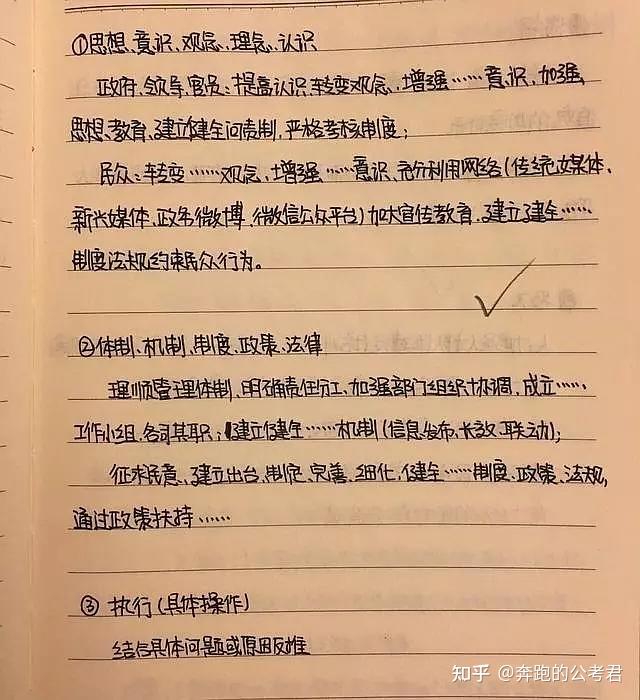 ①思想、意识、观念、理念、认识
政府、领导、官员：提高认识,转变观念、增强……意识、加强
思想、教育、建立健全问责制,严格考核制度；
民众：转变……观念、增强……意识、充分利用网络(传统媒体、
新兴媒体、政务微博、微信公众平台)加大宣传教育、建立健全……
制度法规约束民众行为。
②体制、机制、制度、政策、法律
理顺管理体制、明确责任分工、加强部门组织协调、成立……
工作小组、各司其职；建立健全……机制(信息发布、长效、联动)；
征求民意、建立出台、制定、完善、细化、健全……制度、政策、法规,
通过政策扶持……
③ 执行(具体操作)
结合具体问题或原因反推
知乎 @奔跑的公考君